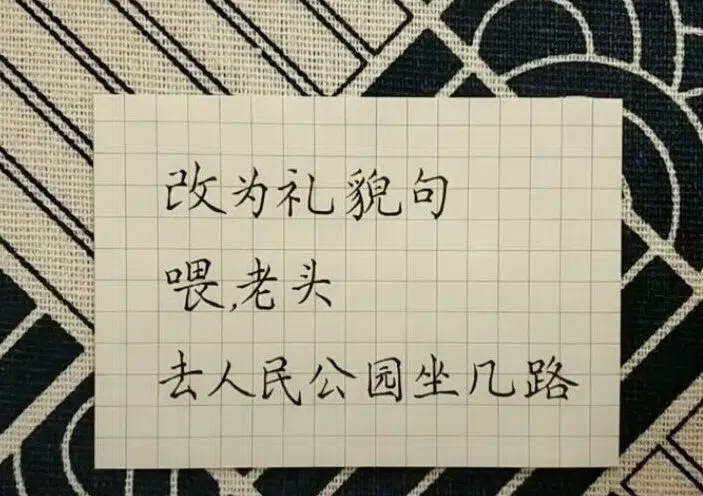 改为礼貌句
喂,老头
去人民公园坐几路